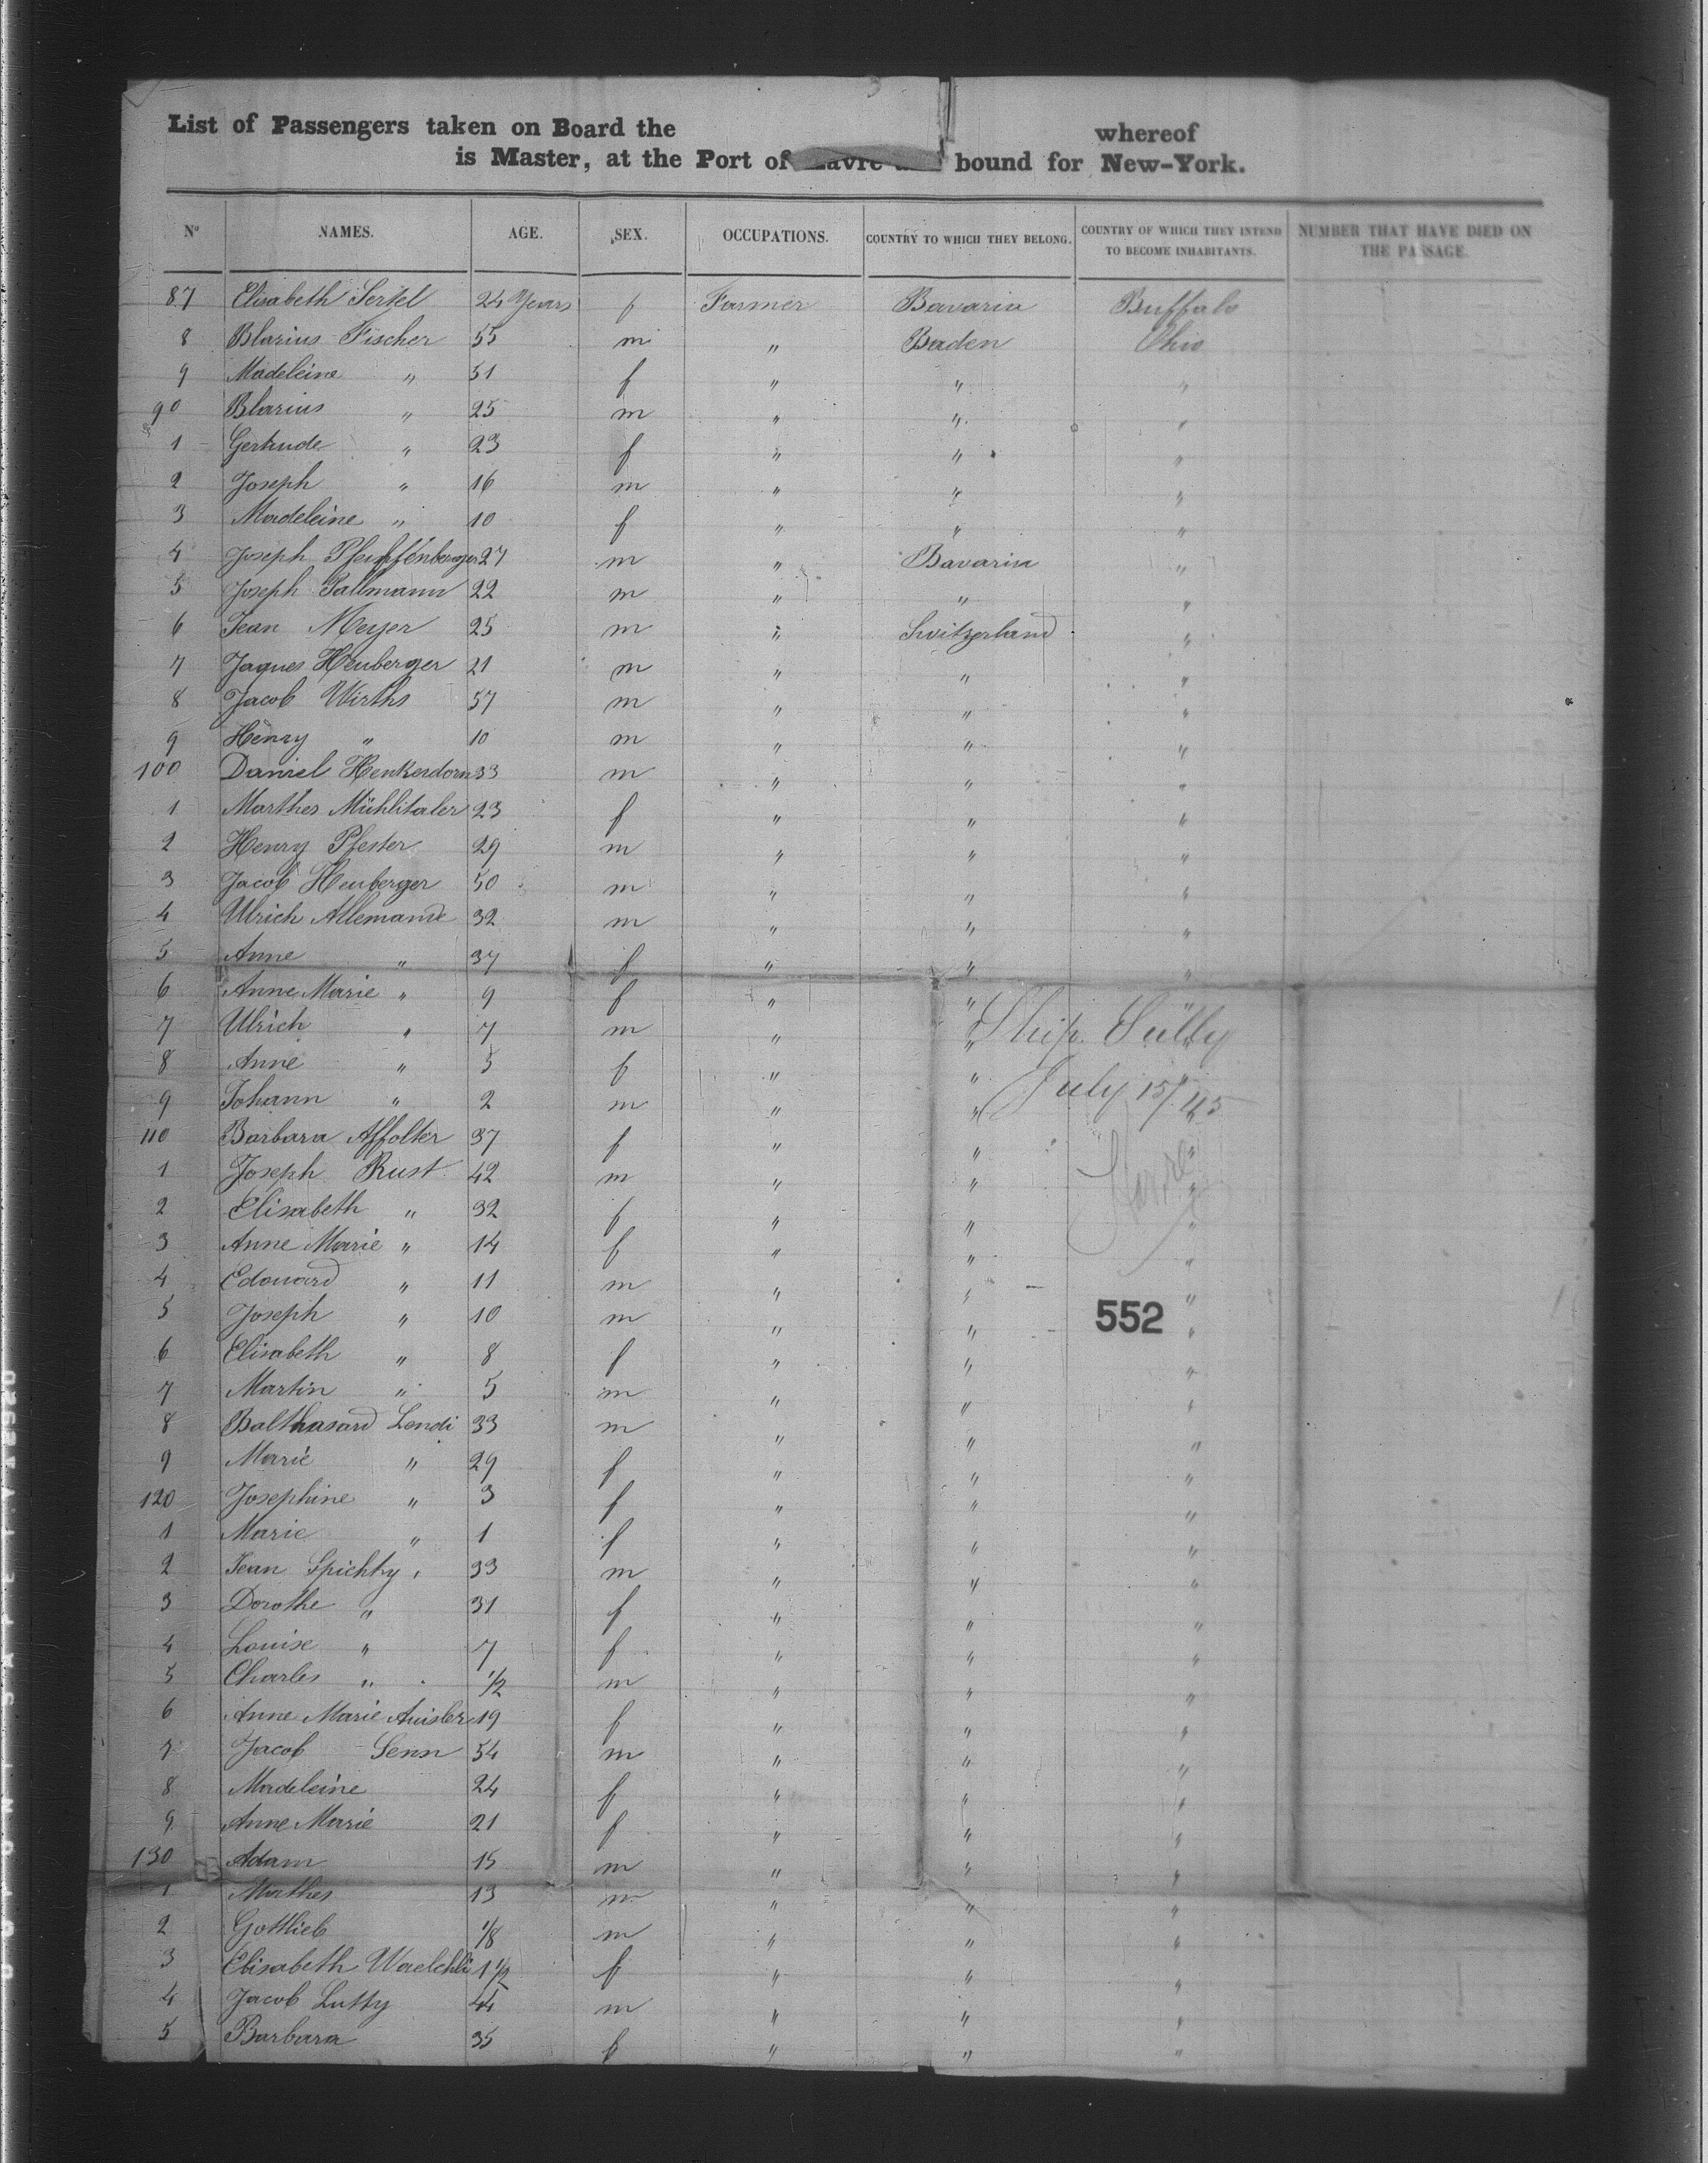 List of Passengers taken on Board the whereof
is Master, at the Port of Havre bound for New-York.
Nº NAMES. AGE. SEX. OCCUPATIONS. COUNTRY TO WHICH THEY BELONG. COUNTRY OF WHICH THEY INTEND TO BECOME INHABITANTS. NUMBER THAT HAVE DIED ON THE PASSAGE.
87 Elisabeth Sertel 24 Years f Farmer Bavaria Buffalo
8 Blasius Fischer 55 m " Baden Ohio
9 Madeleine " 51 f " " "
90 Blasius " 25 m " " "
1 Gertrude " 23 f " " "
2 Joseph " 16 m " " "
3 Madeleine " 10 f " " "
4 Joseph Pfeipffenberger 27 m " Bavaria "
5 Joseph Tallmann 22 m " " "
6 Jean Meyer 25 m " Switzerland "
7 Jaques Heuberger 21 m " " "
8 Jacob Wirths 57 m " " "
9 Henry " 10 m " " "
100 Daniel Henkendorn 33 m " " "
1 Marthes Mühlitaler 23 f " " "
2 Henry Pfester 29 m " " "
3 Jacob Heuberger 50 m " " "
4 Ulrich Allemande 32 m " " "
5 Anne " 37 f " " "
6 Anne Marie " 9 f " " "
7 Ulrich " 7 m " " "
Ship Sully
8 Anne " 5 f " " "
July 15/45
9 Johann " 2 m " " "
110 Barbara Affolter 37 f " " "
1 Joseph Rust 42 m " " "
Havre
2 Elisabeth " 32 f " " "
3 Anne Marie " 14 f " " "
4 Edouard " 11 m " " "
5 Joseph " 10 m " " "
552
6 Elisabeth " 8 f " " "
7 Martin " 5 m " " "
8 Balthasard Lendi 33 m " " "
9 Marie " 29 f " " "
120 Josephine " 3 f " " "
1 Marie " 1 f " " "
2 Jean Spichty 33 m " " "
3 Dorothe " 31 f " " "
4 Louise " 7 f " " "
5 Charles " 1/2 m " " "
6 Anne Marie 19 f " " "
7 Jacob Senn 54 m " " "
8 Madeleine 24 f " " "
9 Anne Marie 21 f " " "
130 Adam 15 m " " "
1 Mathes 13 m " " "
2 Gottlieb 1/8 m " " "
3 Elisabeth Waelchli 1 1/2 f " " "
4 Jacob Lutty 44 m " " "
5 Barbara 35 f " " "